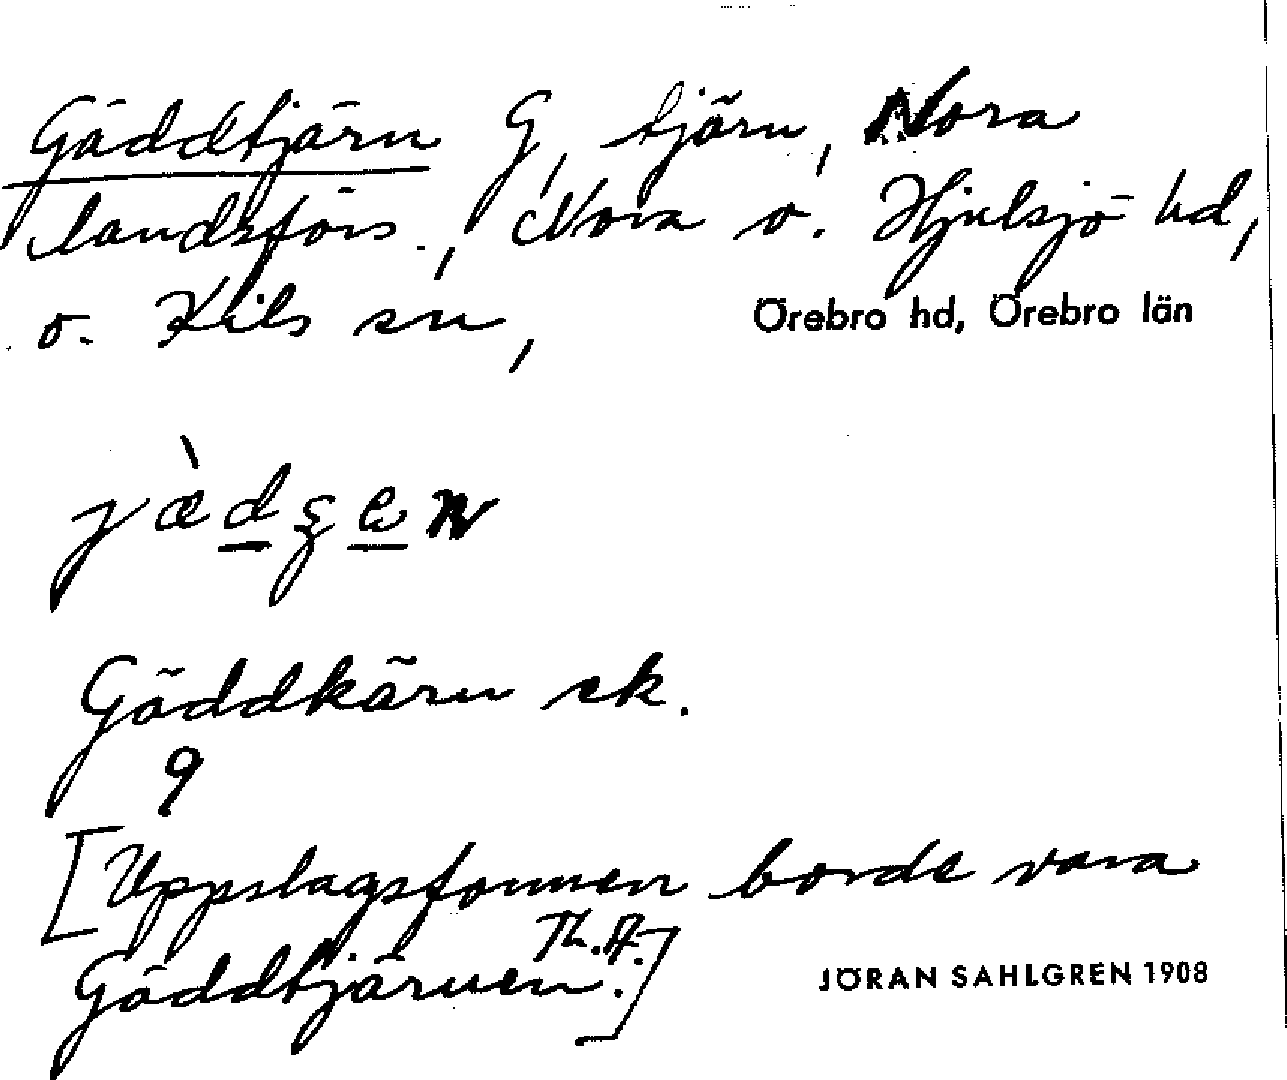 Gäddtjärn G, tjärn, Nora
landsförs., Nora o. Hjulsjö hd,
o. Kils sn, Örebro hd, Örebro län
Gäddkärn ek.
9
[Uppslagsformen borde vara
Gäddtjärnen. Th.A.]
JÖRAN SAHLGREN 1908